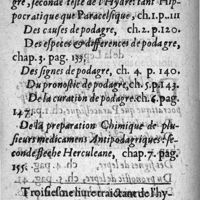 gre, seconde teste de l'Hydre: tant Hip-
pocratique que Paracelsique, ch.1.p.111
Des causes de podagre, ch.2.p.120.
Des especes & differences de podagre,
chap. 3. pag. 135.
Des signes de podagre, ch. 4. p. 140.
Du pronostic de podagre, ch.5.p.143.
De la curation de podagre.ch.6.pag.
147.
De la preparation Chimique de plu-
sieurs medicamens Antipodagriques: se-
conde flesche Herculeane, chap.7. pag.
155.
Troisiesme livre traictant de l'hy-